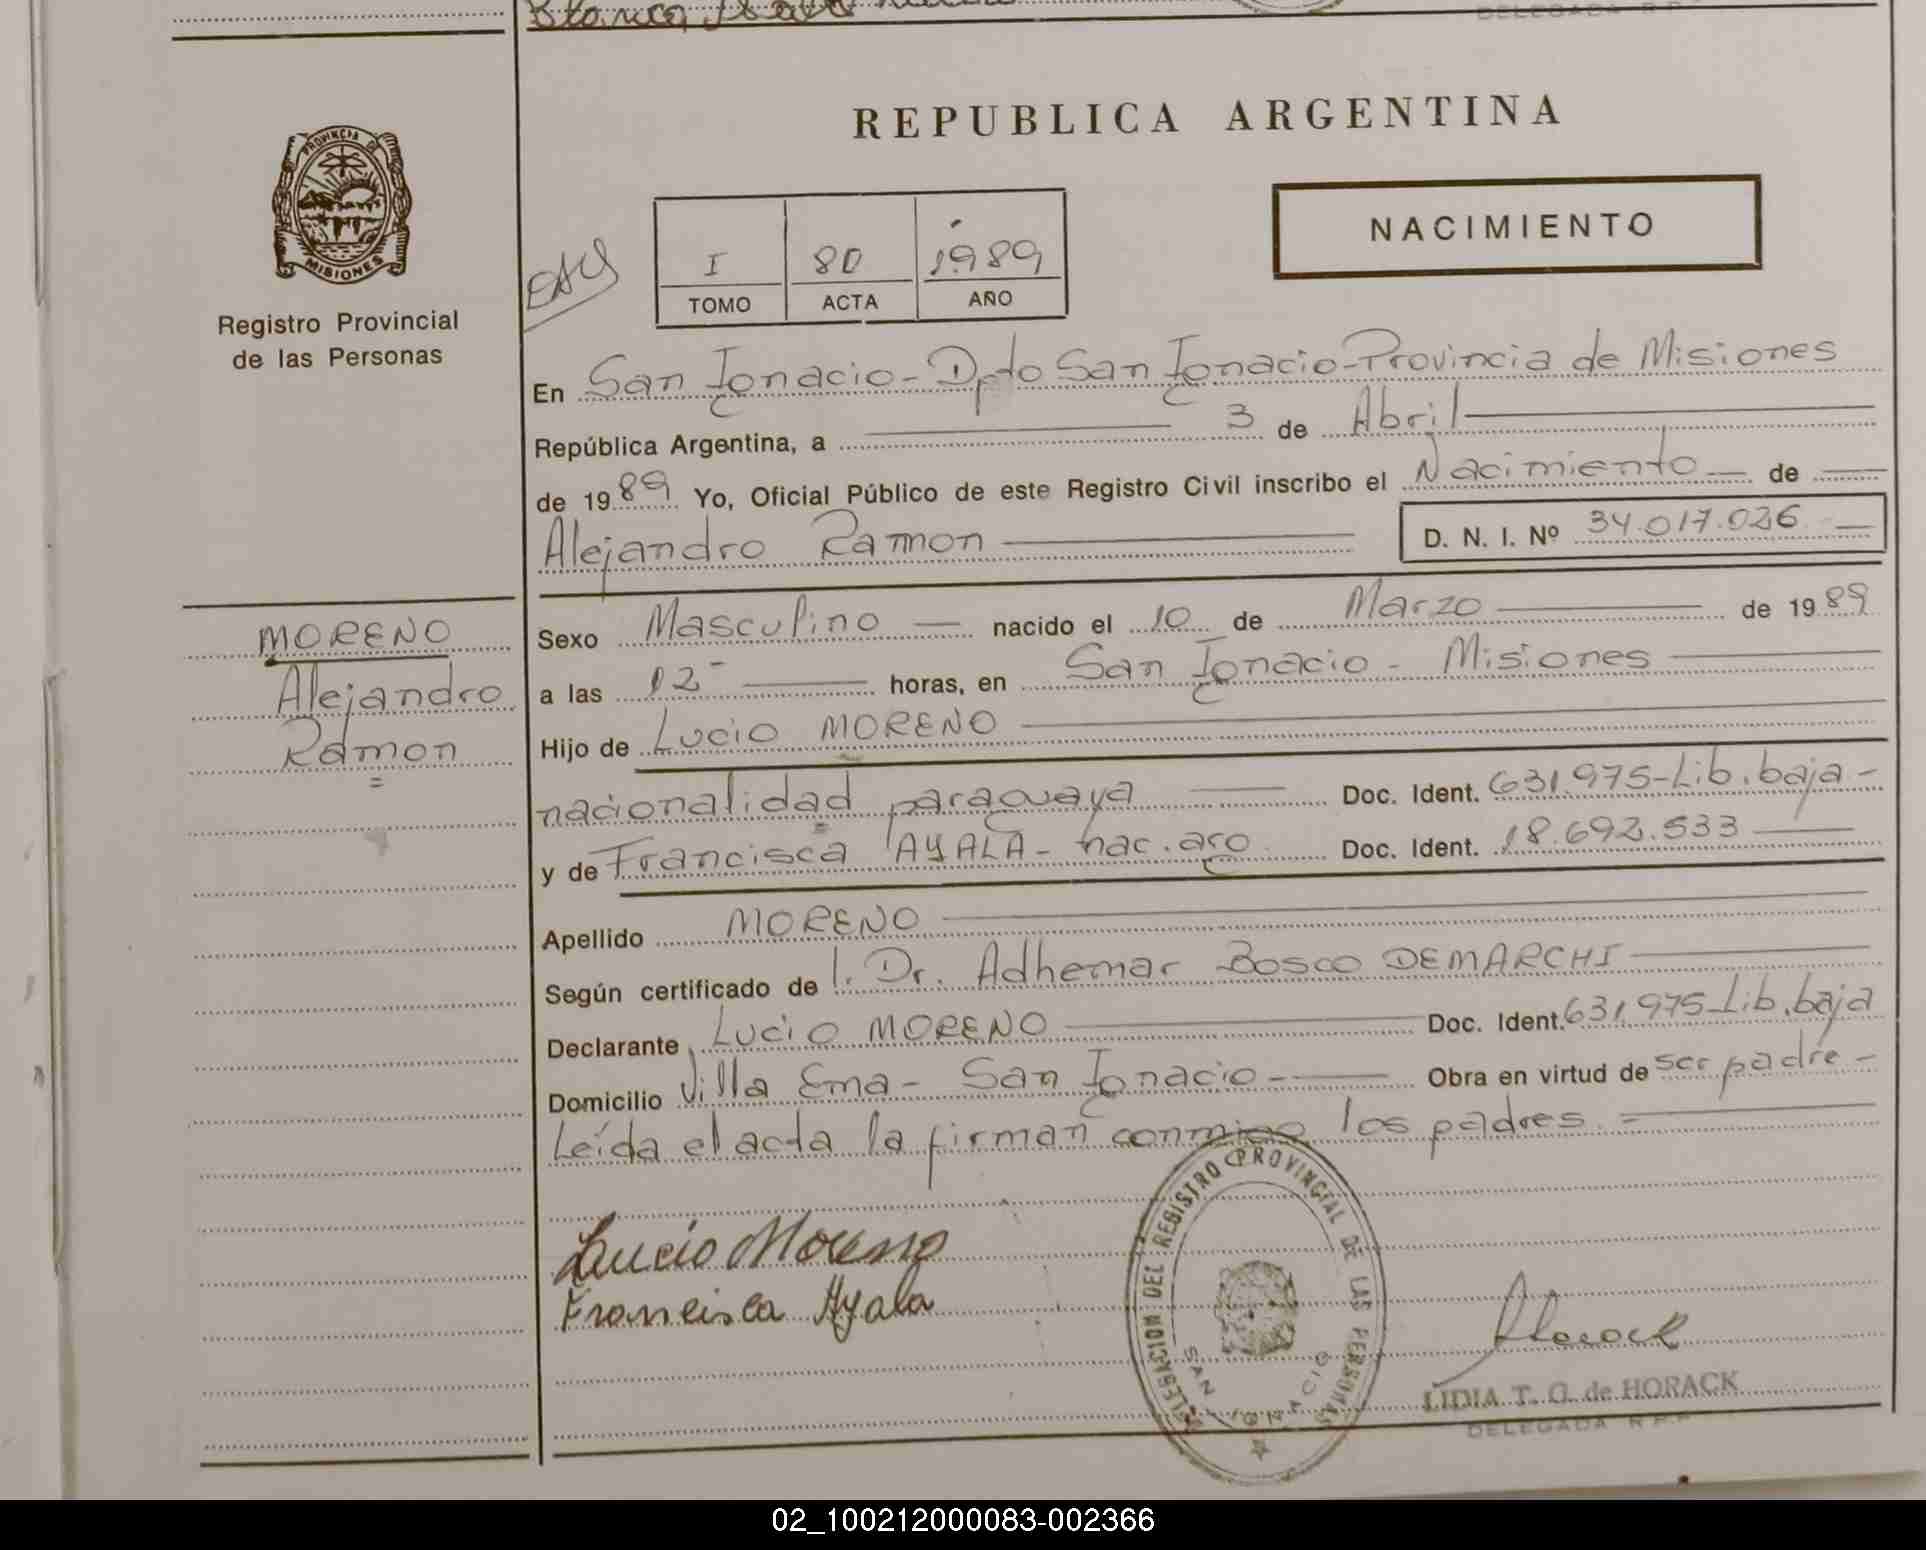 REPUBLICA ARGENTINA
PROVINCIA DE
MISIONES
Registro Provincial
de las Personas
I 80 1989
TOMO ACTA AÑO
NACIMIENTO
En San Ignacio - Dpto San Ignacio - Provincia de Misiones
República Argentina, a 3 de Abril
de 1989 Yo, Oficial Público de este Registro Civil inscribo el Nacimiento de
Alejandro Ramon D. N. I. Nº 34.017.026
MORENO
Alejandro
Ramon
Sexo Masculino nacido el 10 de Marzo de 1989
a las 12 horas, en San Ignacio - Misiones
Hijo de Lucio MORENO
nacionalidad paraguaya Doc. Ident. 631.975-Lib.baja-
y de Francisca AYALA - nac. arg. Doc. Ident. 18.692.533
Apellido MORENO
Según certificado de l. Dr. Adhemar Bosco DEMARCHI
Declarante Lucio MORENO Doc. Ident. 631.975-Lib.baja
Domicilio Villa Ema - San Ignacio - Obra en virtud de ser padre -
Leída el acta la firman conmigo los padres. =
Lucio Moreno
Francisca Ayala
DELEGACION DEL REGISTRO PROVINCIAL DE LAS PERSONAS
SAN IGNACIO
Horack
LIDIA T. G. de HORACK
DELEGADA R.P.P.
02_100212000083-002366